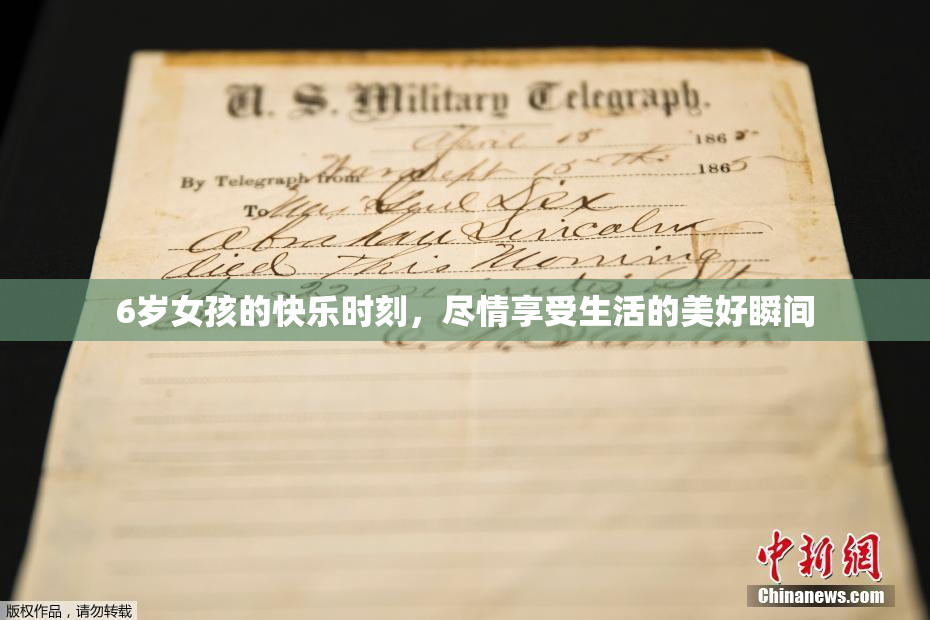 U. S. Military Telegraph.
April 15 1865
By Telegraph from War Dept 15th 1865
To Maj Genl Dix
Abraham Lincoln
died This Morning
22 minutes after
6岁女孩的快乐时刻，尽情享受生活的美好瞬间
E. M. Stanton
中新网
Chinanews.com
版权作品，请勿转载